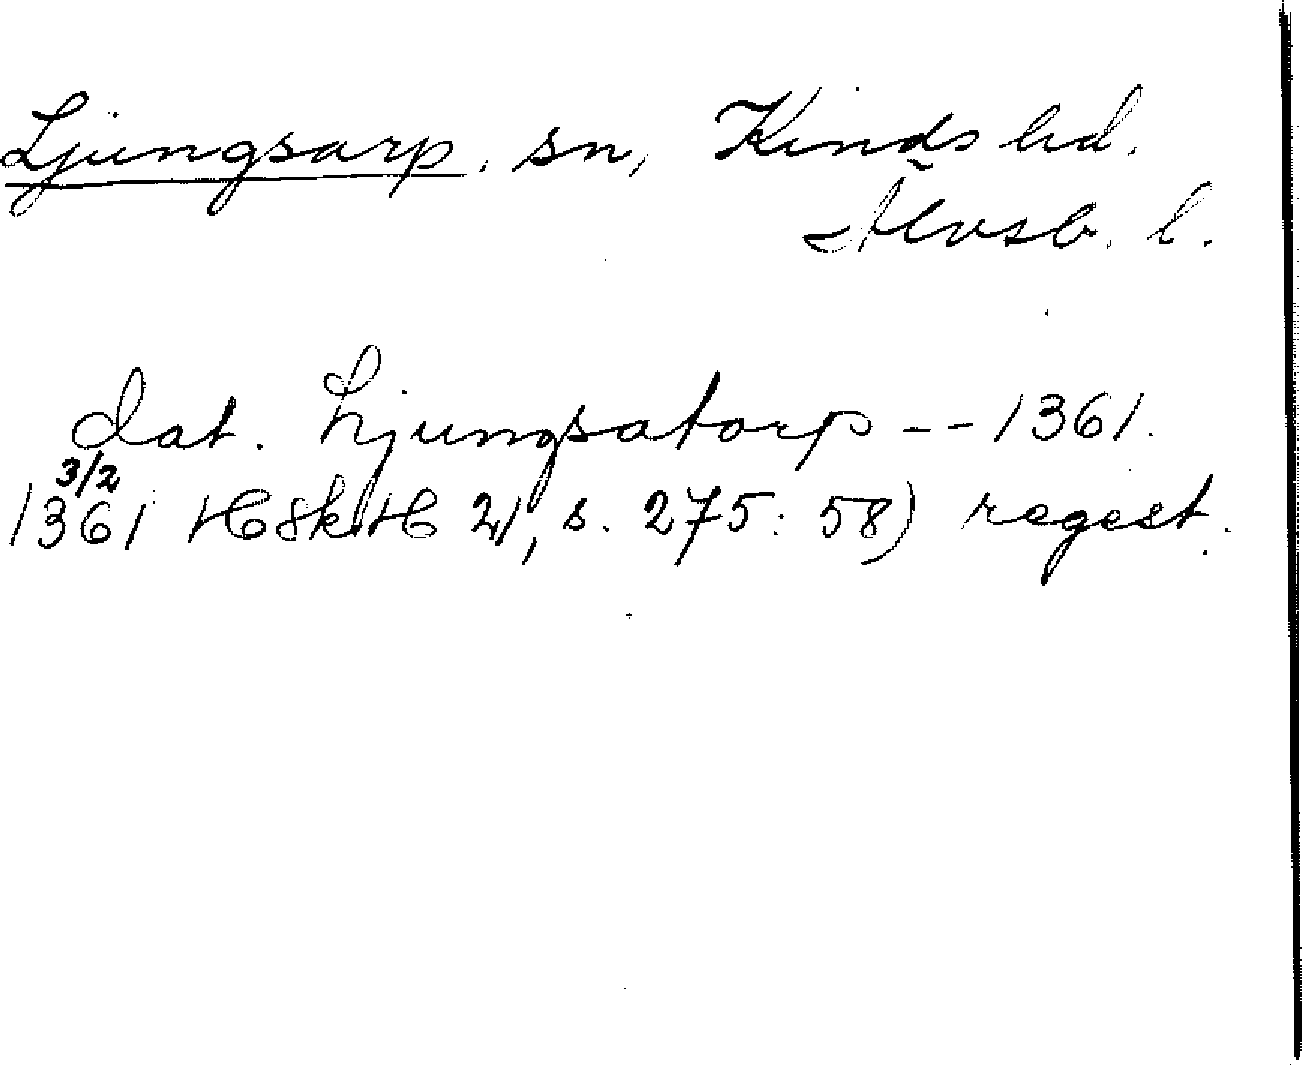 Ljungsarp, sn, Kinds hd.
Älvsb. l.
dat. Ljungsatorp -- 1361.
3/2
1361 HSkH 21, s. 275: 58) regest.